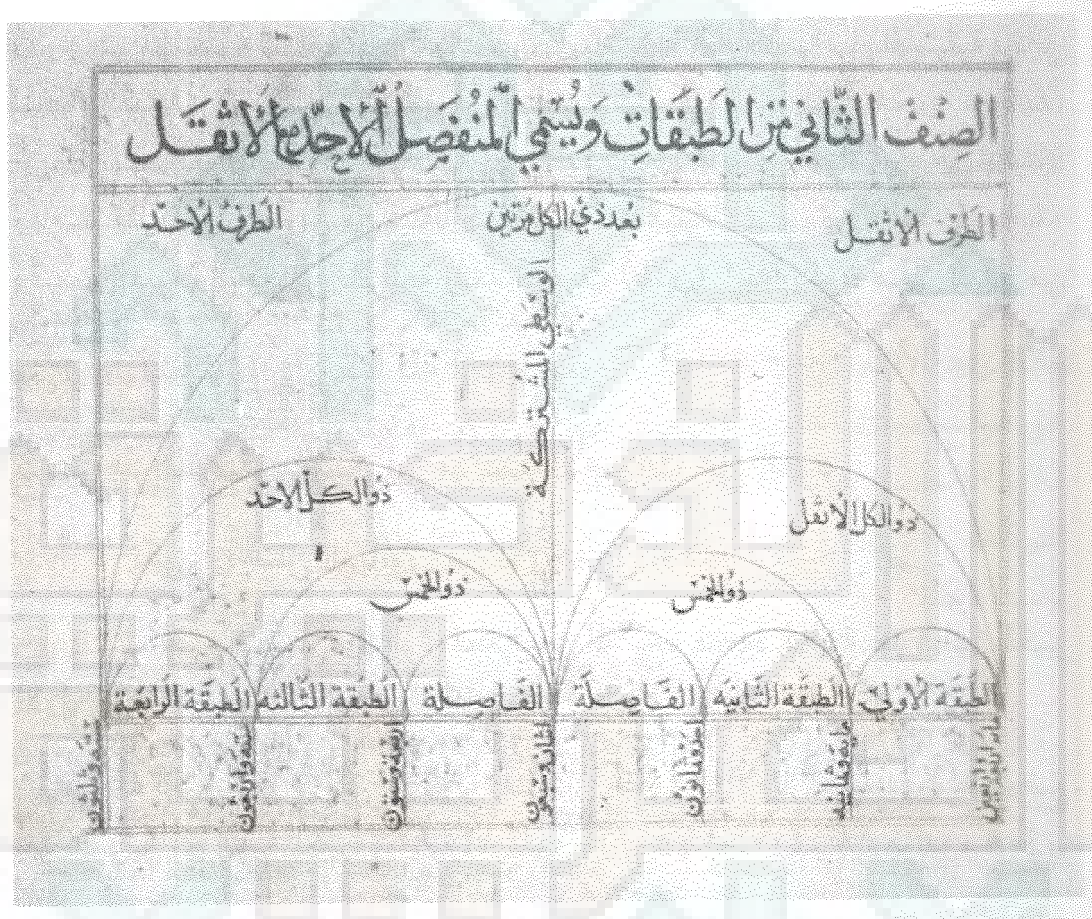 الصِنْفُ الثّاني مِنَ الطَبَقَاتِ وَيُسَمّي المُنْفَصِلُ الاحدّ مع الاثقَل
الطرف الاثقل
بعد ذي الكل مرتين
الطرف الاحد
الوسطي المشتركة
ذو الكل الاثقل
ذو الكل الاحد
ذو الخمس
ذو الخمس
الطبقة الاولي الطبقة الثانيه الفاصلة الفاصلة الطبقة الثالثه الطبقة الرابعة
واربعين
مايه وثمانيه
احد وثمانون
اثنان وسبعون
اربعة وستون
واربعون
ستة وثلثون